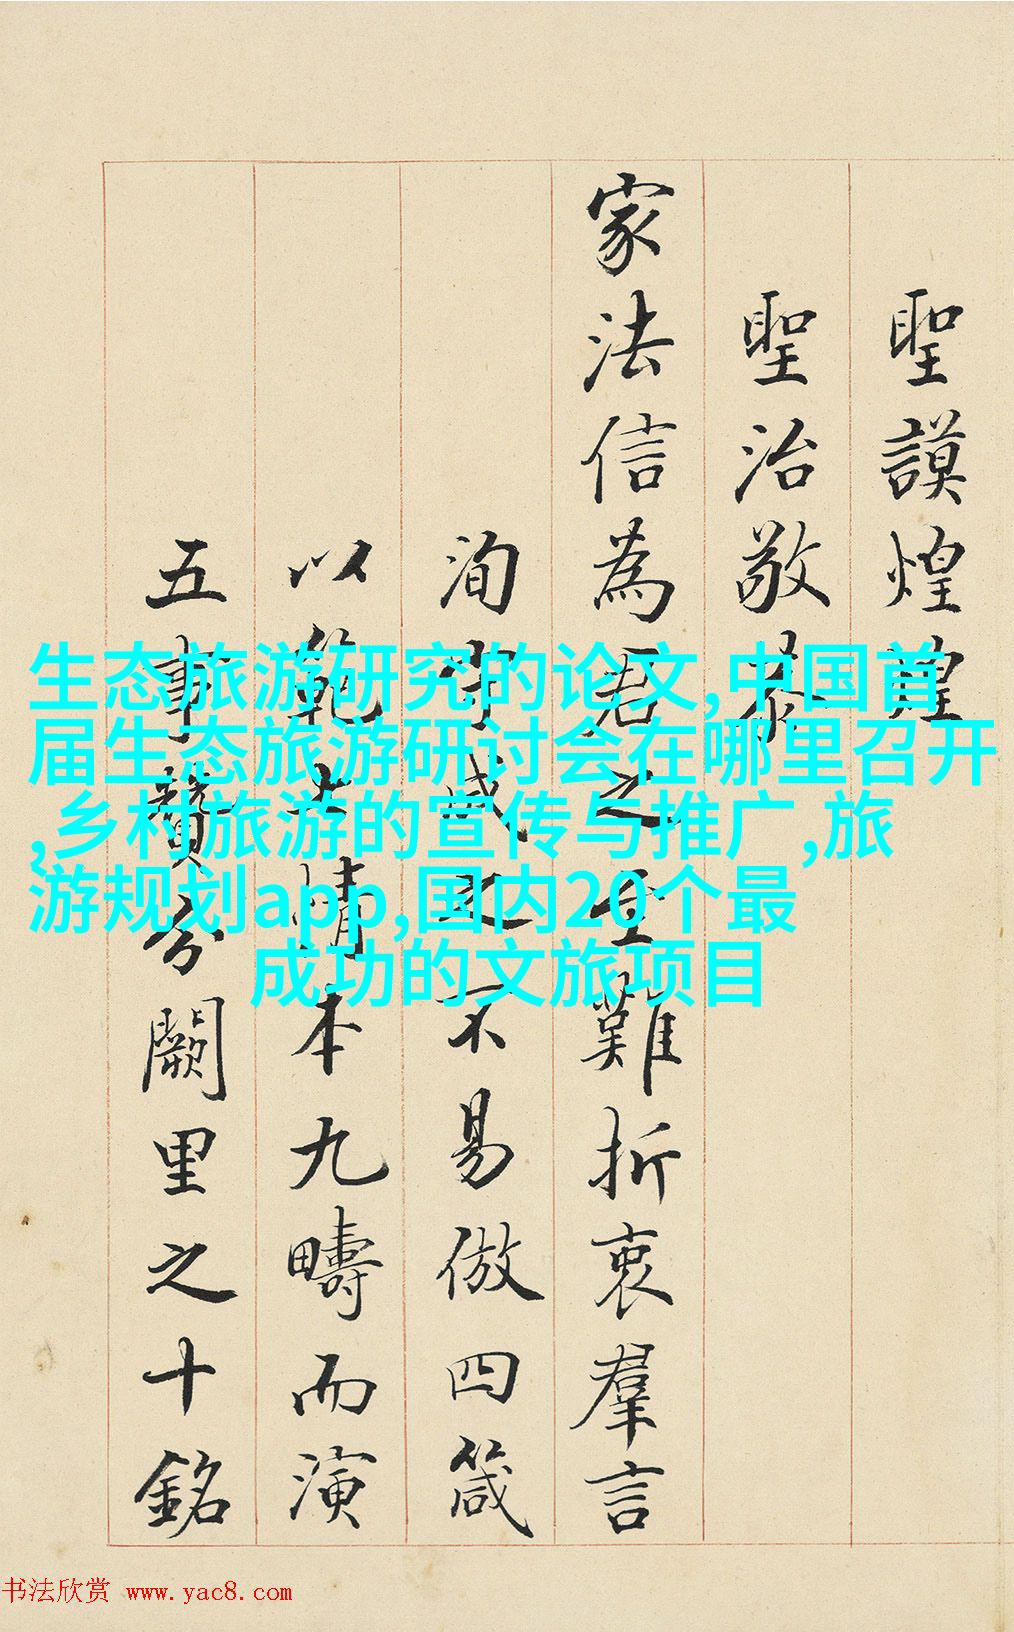 聖謨煌煌
聖治敬
家法信為君之至難折衷羣言
洵守成之不易倣四箴
以範七情本九疇而演
五事贊分闕里之十銘
生态旅游研究的论文,中国首
届生态旅游研讨会在哪里召开
,乡村旅游的宣传与推广,旅
游规划app,国内20个最
成功的文旅项目
书法欣赏 www.yac8.com